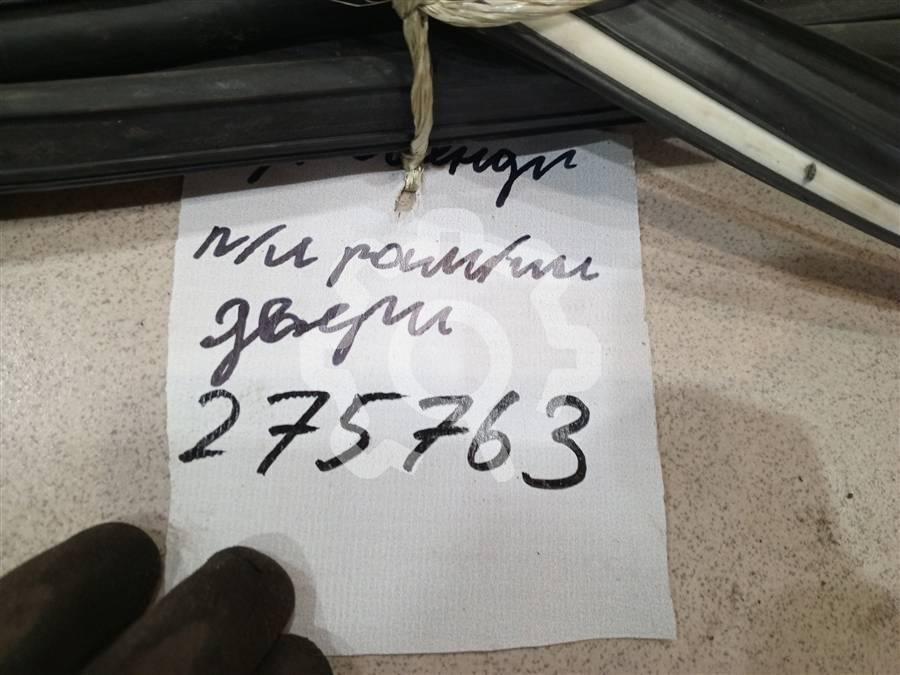 п/и рамки
двери
275763